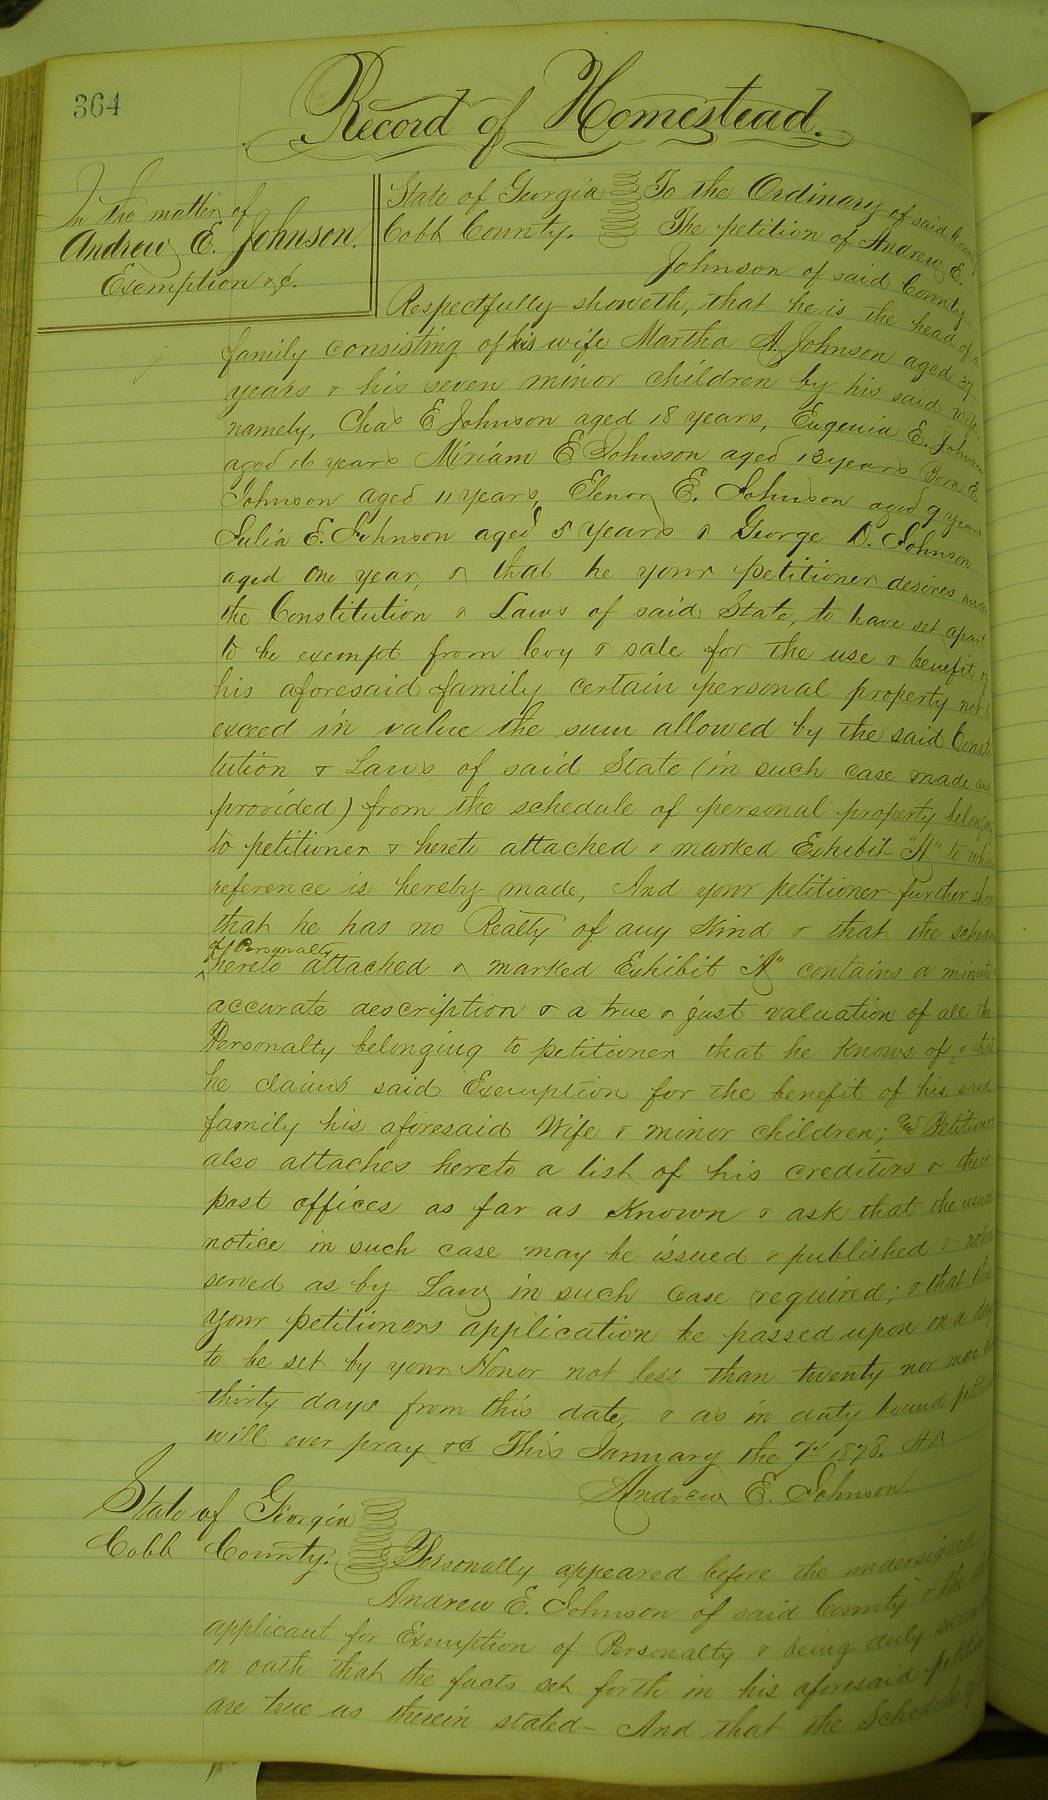 364
Record of Homestead.
In the matter of
Andrew E. Johnson.
Exemption &c.
State of Georgia To the Ordinary of said County
Cobb County. The petition of Andrew E.
Johnson of said County
Respectfully showeth, that he is the head of a
family consisting of his wife Martha A. Johnson aged 37
years & his seven minor children by his said wife
namely, Chas E Johnson aged 18 years, Eugenia E. Johnson
aged 16 years Miriam E Johnson aged 13 years E
Johnson aged 11 years, Elenor E. Johnson aged 9 years
Julia E. Johnson aged 5 years & George D. Johnson
aged One year, & that he your petitioner desires under
the Constitution & Laws of said State, to have set apart
to be exempt from levy & sale for the use & benefit of
his aforesaid family certain personal property not to
exceed in value the sum allowed by the said Consti
tution & Laws of said State (in such case made and
provided) from the schedule of personal property belonging
to petitioner & hereto attached & marked Exhibit "A" to which
reference is hereby made, And your petitioner further
that he has no Realty of any Kind & that the
of Personalty
hereto attached & marked Exhibit "A" contains a minute
accurate description & a true & just valuation of all the
Personalty belonging to petitioner that he knows of, & that
he claims said Exemption for the benefit of his said
family his aforesaid Wife & minor children; & Petitioner
also attaches hereto a list of his creditors & their
post offices as far as Known & ask that the usual
notice in such case may be issued & published & notice
served as by Law in such case required; & that this
your petitioners application be passed upon on a day
to be set by your Honor not less than twenty nor more than
thirty days from this date, & as in duty bound petitioner
will ever pray &c This January the 7th 1878.
Andrew E. Johnson.
State of Georgia
Cobb County. Personally appeared before the undersigned
Andrew E. Johnson of said County & the
applicant for Exemption of Personalty & being duly sworn
on oath that the facts set forth in his aforesaid petition
are true as therein stated - And that the Schedule of